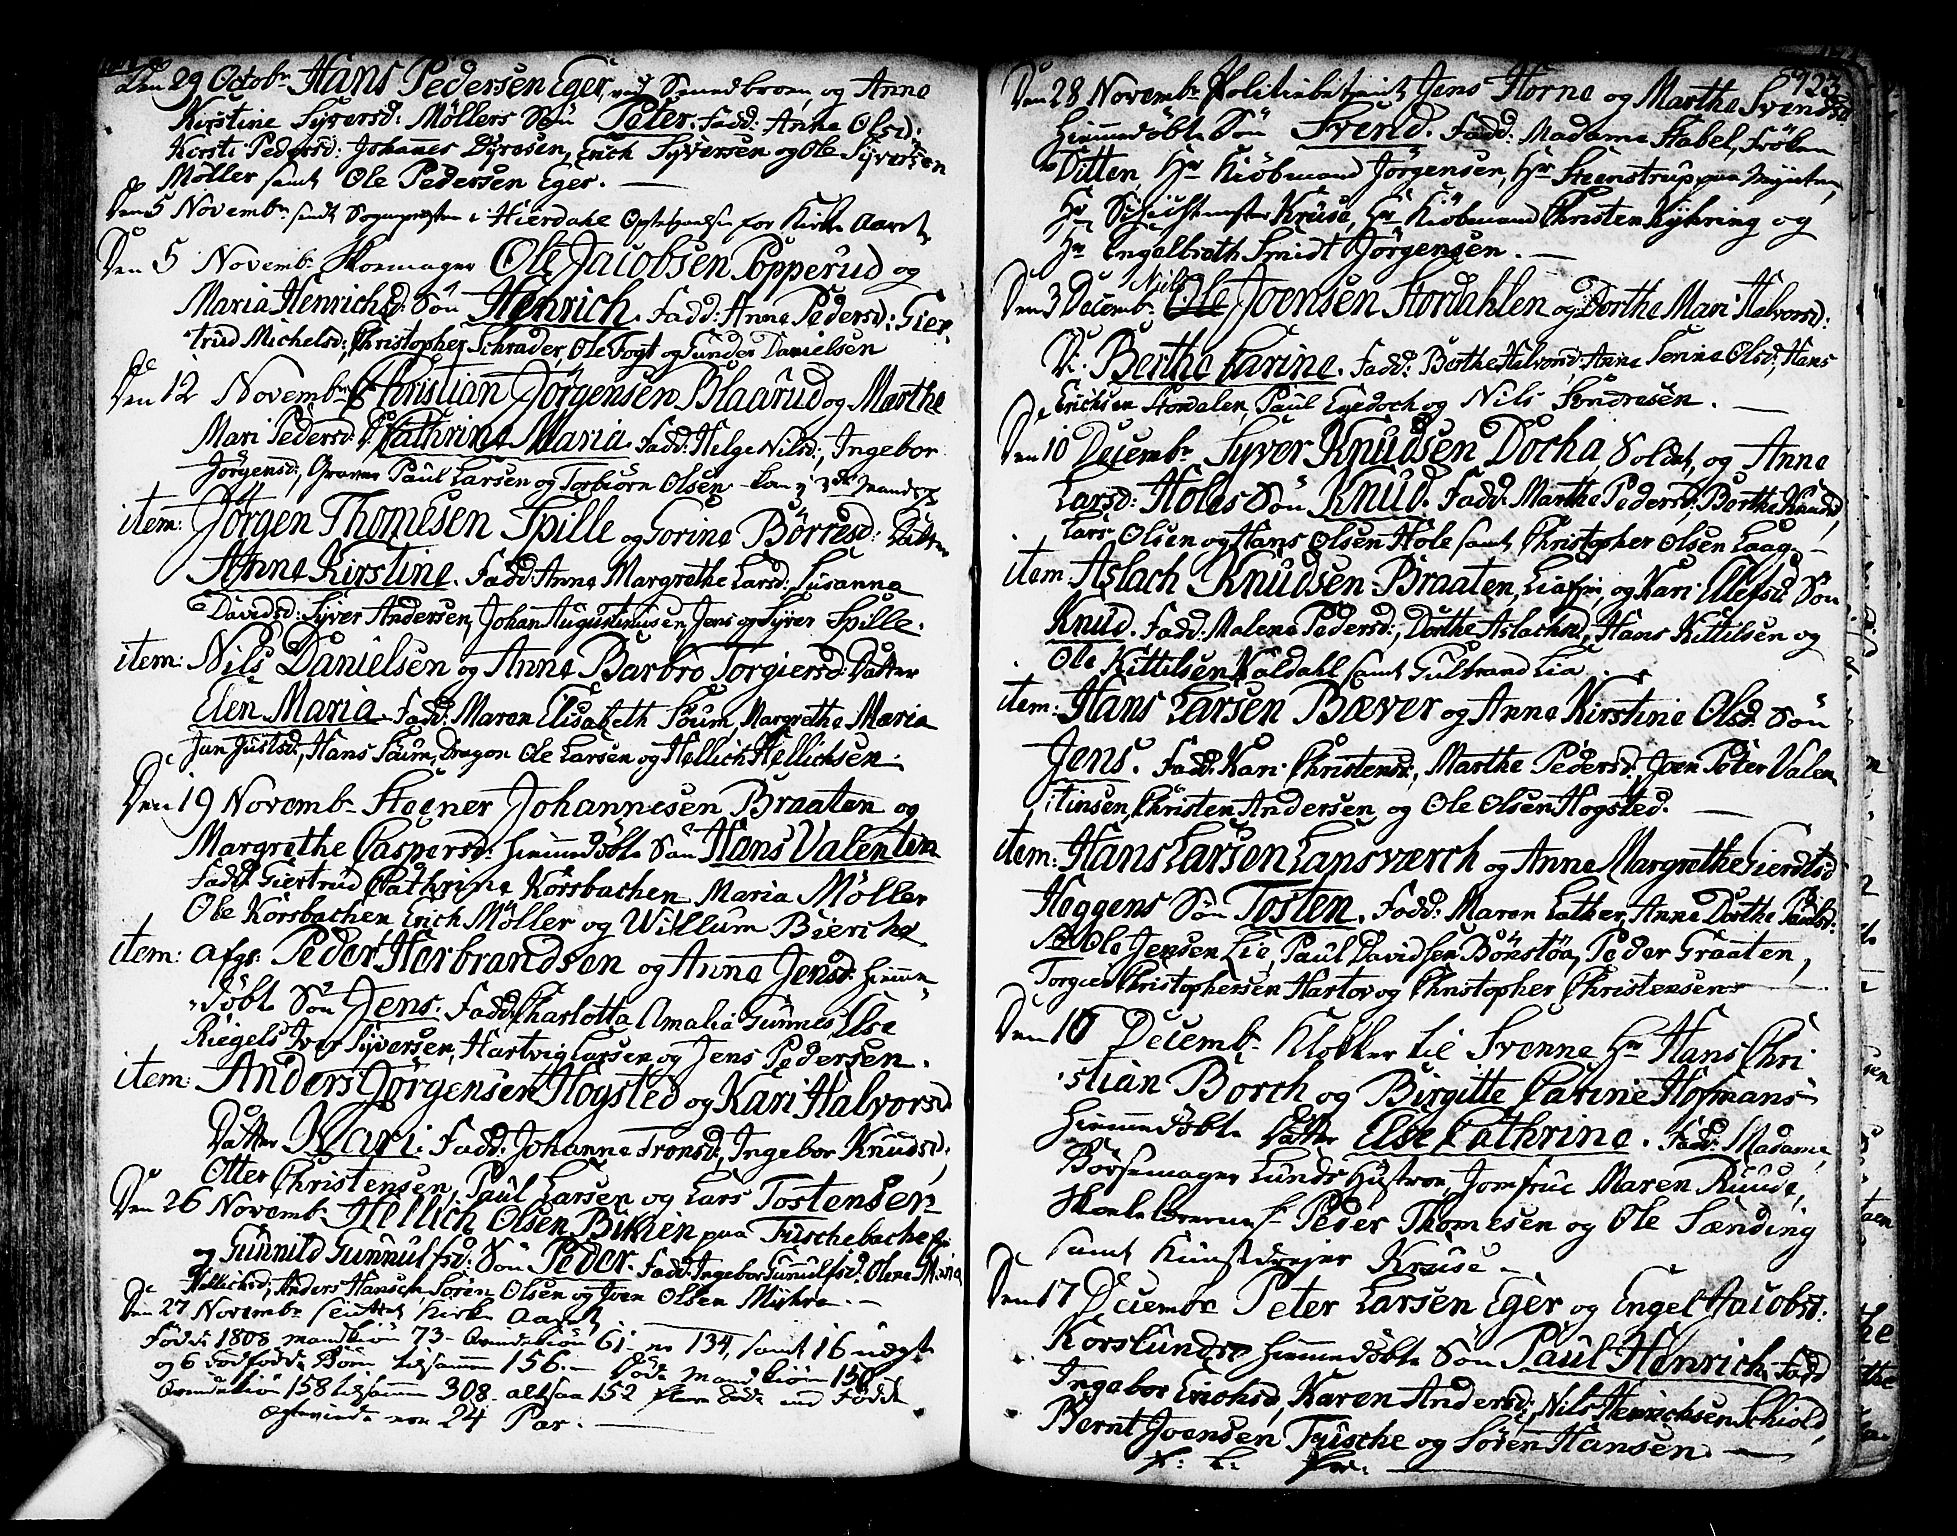 Den 29 Octobr Hans Pedersen Eger, ved Smedbroen, og Anne
Kirstine Syversd: Möllers Sön Peter. Fadd: Anne Olsd:
Kirsti Pedersd: Johanes Dyresen, Erich Syversen og Ole Syversen
Möller samt Ole Pedersen Eger.
Den 5 Novembr samt Sognepresten i Hierdahl for Kirke Aaret
Den 5 Novembr Skoemager Ole Jacobsen Popperud og
Maria Henrichsd: Sön Henrich. Fadd: Anne Pedersd: Gier
trud Michelsd:, Christopher Schrader, Ole Fogt og Gunder Danielsen
Den 12 Novembr Christian Jörgensen Blaarud og Marthe
Mari Pedersd: D: Cathrine Maria. Fadd: Helge Nilsd:, Ingebor
Jörgensd:, Paul Larsen og Torbiörn Olsen
item: Jörgen Thomesen Spille og Gorine Börresd: Datter
Anne Kirstine. Fadd: Anne Margrethe Larsd: Susanna
Davidsd: Syver Andersen, Johan Augustinusen, Jens og Syver Spille.
item: Nils Danielsen og Anne Barbro Torgiersd: Datter
Elen Maria. Fadd: Maren Elisabeth Soum, Margrethe Maria
Jan Justsd:, Hans Soum, Dragon Ole Larsen og Hellich Hellichsen.
Den 19 Novembr Steener Johannesen Braaten og
Margrethe Caspersd: hiemmedöbte Sön Hans Valentin
Fadd: Giertrud Cathrine Korsbachen Maria Möller
Ole Korsbachen Erich Möller og Willum Bierche
item: afg: Peder Herbrandsen og Anne Jensd: hiemme
döbte Sön Jens. Fadd: Charlotta Amalia Gunnes, Else
Riegels Iver Syversen, Hartvig Larsen og Jens Pedersen.
item: Anders Jörgensen Hogsted og Kari Halvorsd
Datter Kari. Fadd: Johanne Tronsd:, Ingebor Knudsd,
Otter Christensen, Paul Larsen og Lars Tostensen
Den 26 Novembr Hellich Olsen Bikien paa Tuschebache
og Gunnild Gunnulfsd: Sön Peder. Fadd: Ingebor Gunnulfsd: Olene Maria
Hellichsd:, Anders Hansen, Sören Olsen og Joen Olsen Myhre.
Den 27 Novembr Kirke Aaret
Födde 1808 mandkiön 73 - Qvindekiön 61 er 134, samt 16 uægte
og 6 dödfödde Börn tilsammen 156. Döde mandkiön 150
Qvindekiön 158 tilsammen 308. altsaa 152 flere döde end Födde
Egteviede ere 24 Par.
923
Den 28 Novembr Politiebetient Jens Horne og Marthe Svendsd
hiemmedöbte Sön Svend. Fadd: Madame Stabel, Fröken
Ditten, Hr Kiöbmand Jörgensen, Hr Steenstrup paa Mynten,
Hr Kruse, Hr Kiöbmand Christen Kyhring og
Hr Engelbreth Smidt Jörgensen.
Den 3 Decembr Ole Nils Joensen Stordahlen og Dorthe Mari Halvorsd:
D: Berthe Carine. Fadd: Berthe Halvorsd: Anne Serine Olsd: Hans
Erichsen Stordalen, Paul og Nils Söndresen.
Den 10 Decembr Syver Knudsen Docha Soldat, og Anne
Larsd: Holes Sön Knud. Fadd: Marthe Pedersd:, Berthe Knudsd,
Lars Olsen og Hans Olsen Hole samt Christopher Olsen Laag.
item: Aslach Knudsen Braaten, og Kari Ellefsd Sön
Knud. Fadd: Malene Pedersd:, Dorthe Aslachsd, Hans Kittilsen og
Ole Kittilsen Kaldahl samt Gulbrand Lia.
item: Hans Larsen Bæver og Anne Kirstine Olsd: Sön
Jens. Fadd: Kari Christensd:, Marthe Pedersd:, Joen Peter Valen
tinsen, Christen Andersen og Ole Olsen Hogsted.
item: Hans Larsen Lansværch og Anne Margrethe Gierdtsd
Heggens Sön Tosten. Fadd: Maren Lather, Anne Dorthe Paulsd:
Ole Jensen Lie, Paul Davidsen Bönstöa, Peder Graaten,
Torger Christophersen Hartov og Christopher Christensen
Den 16 Decembr Klokker til Svenne Hr Hans Chri
stian Borch og Birgitte Carine Hofmans
hiemmedöbte Datter Else Cathrine. Fadd: Madame
Börsemager Lunds Hustroe, Jomfrue Maren Ruud,
Skoeleholderne Peder Thomesen og Ole Sænding
samt Kunstdrejer Kruse
Den 17 Decembr Peter Larsen Eger og Engel Jacobsd:
Korslunds hiemmedöbte Sön Paul Henrich. Fadd
Ingebor Erichsd, Karen Andersd:, Nils Henrichsen Schiold,
Bernt Joensen Tusche og Sören Hansen.